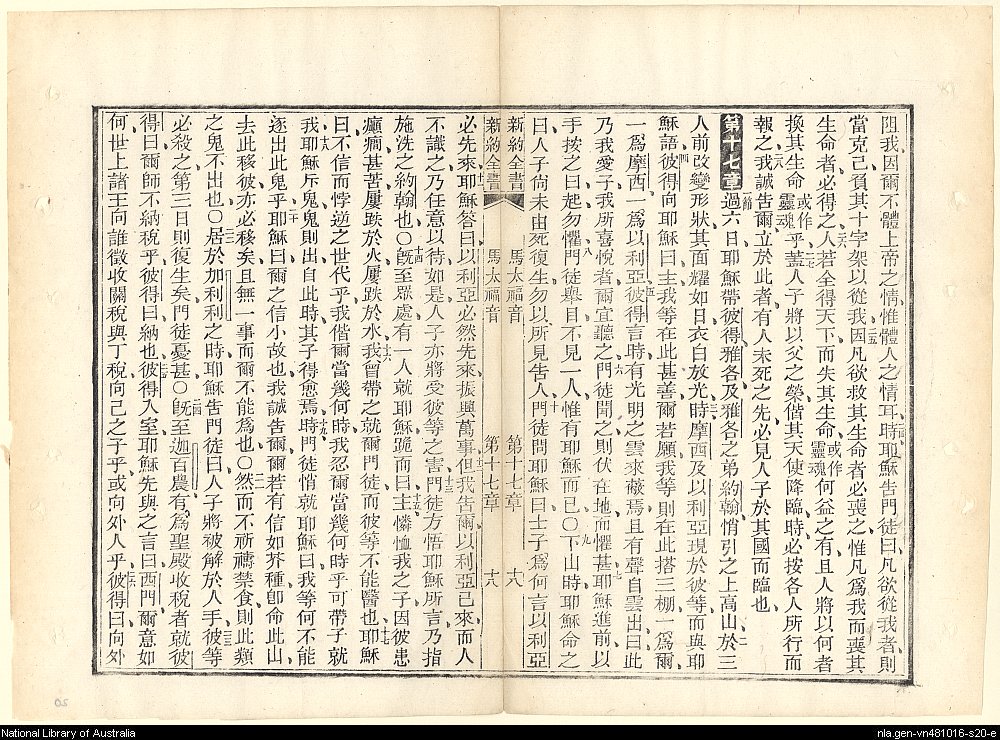 阻我因爾不體上帝之情惟體人之情耳時耶穌告門徒曰凡欲從我者則
當克己負其十字架以從我因凡欲救其生命者必喪之惟凡爲我而喪其
生命者必得之人若全得天下而失其生命或作靈魂何益之有且人將以何者
換其生命或作靈魂乎蓋人子將以父之榮偕其天使降臨時必按各人所行而
報之我誠告爾立於此者有人未死之先必見人子於其國而臨也
第十七章過六日耶穌帶彼得雅各及雅各之弟約翰悄引之上高山於三
人前改變形狀其面耀如日衣白放光時摩西及以利亞現於彼等而與耶
穌語彼得向耶穌曰主我等在此甚善爾若願我等則在此搭三棚一爲爾
一爲摩西一爲以利亞彼得言時有光明之雲來蔽焉且有聲自雲出曰此
乃我愛子我所喜悅者爾宜聽之門徒聞之則伏在地而懼甚耶穌進前以
手按之曰起勿懼門徒舉目不見一人惟有耶穌而已〇下山時耶穌命之
曰人子尙未由死復生勿以所見告人門徒問耶穌曰士子爲何言以利亞
新約全書 馬太福音 第十七章 十八
新約全書 馬太福音 第十七章 十八
必先來耶穌答曰以利亞必然先來振興萬事但我告爾以利亞已來而人
不識之乃任意以待如是人子亦將受彼等之害門徒方悟耶穌所言乃指
施洗之約翰也〇旣至眾處有一人就耶穌跪而曰主憐恤我之子因彼患
癲癇甚苦屢跌於火屢跌於水我曾帶之就爾門徒而彼等不能醫也耶穌
曰不信而悖逆之世代乎我偕爾當幾何時我忍爾當幾何時乎可帶子就
我耶穌斥鬼鬼則出自此時其子得愈焉時門徒悄就耶穌曰我等何不能
逐出此鬼乎耶穌曰爾之信小故也我誠告爾爾若有信如芥種卽命此山
去此移彼亦必移矣且無一事而爾不能爲也〇然而不祈禱禁食則此類
之鬼不出也〇居於加利利之時耶穌告門徒曰人子將被解於人手彼等
必殺之第三日則復生矣門徒憂甚〇旣至迦百農有爲聖殿收稅者就彼
得曰爾師不納稅乎彼得曰納也彼得入室耶穌先與之言曰西門爾意如
何世上諸王向誰徵收關稅與丁稅向己之子乎或向外人乎彼得曰向外
National Library of Australia
nla.gen-vn481016-s20-e